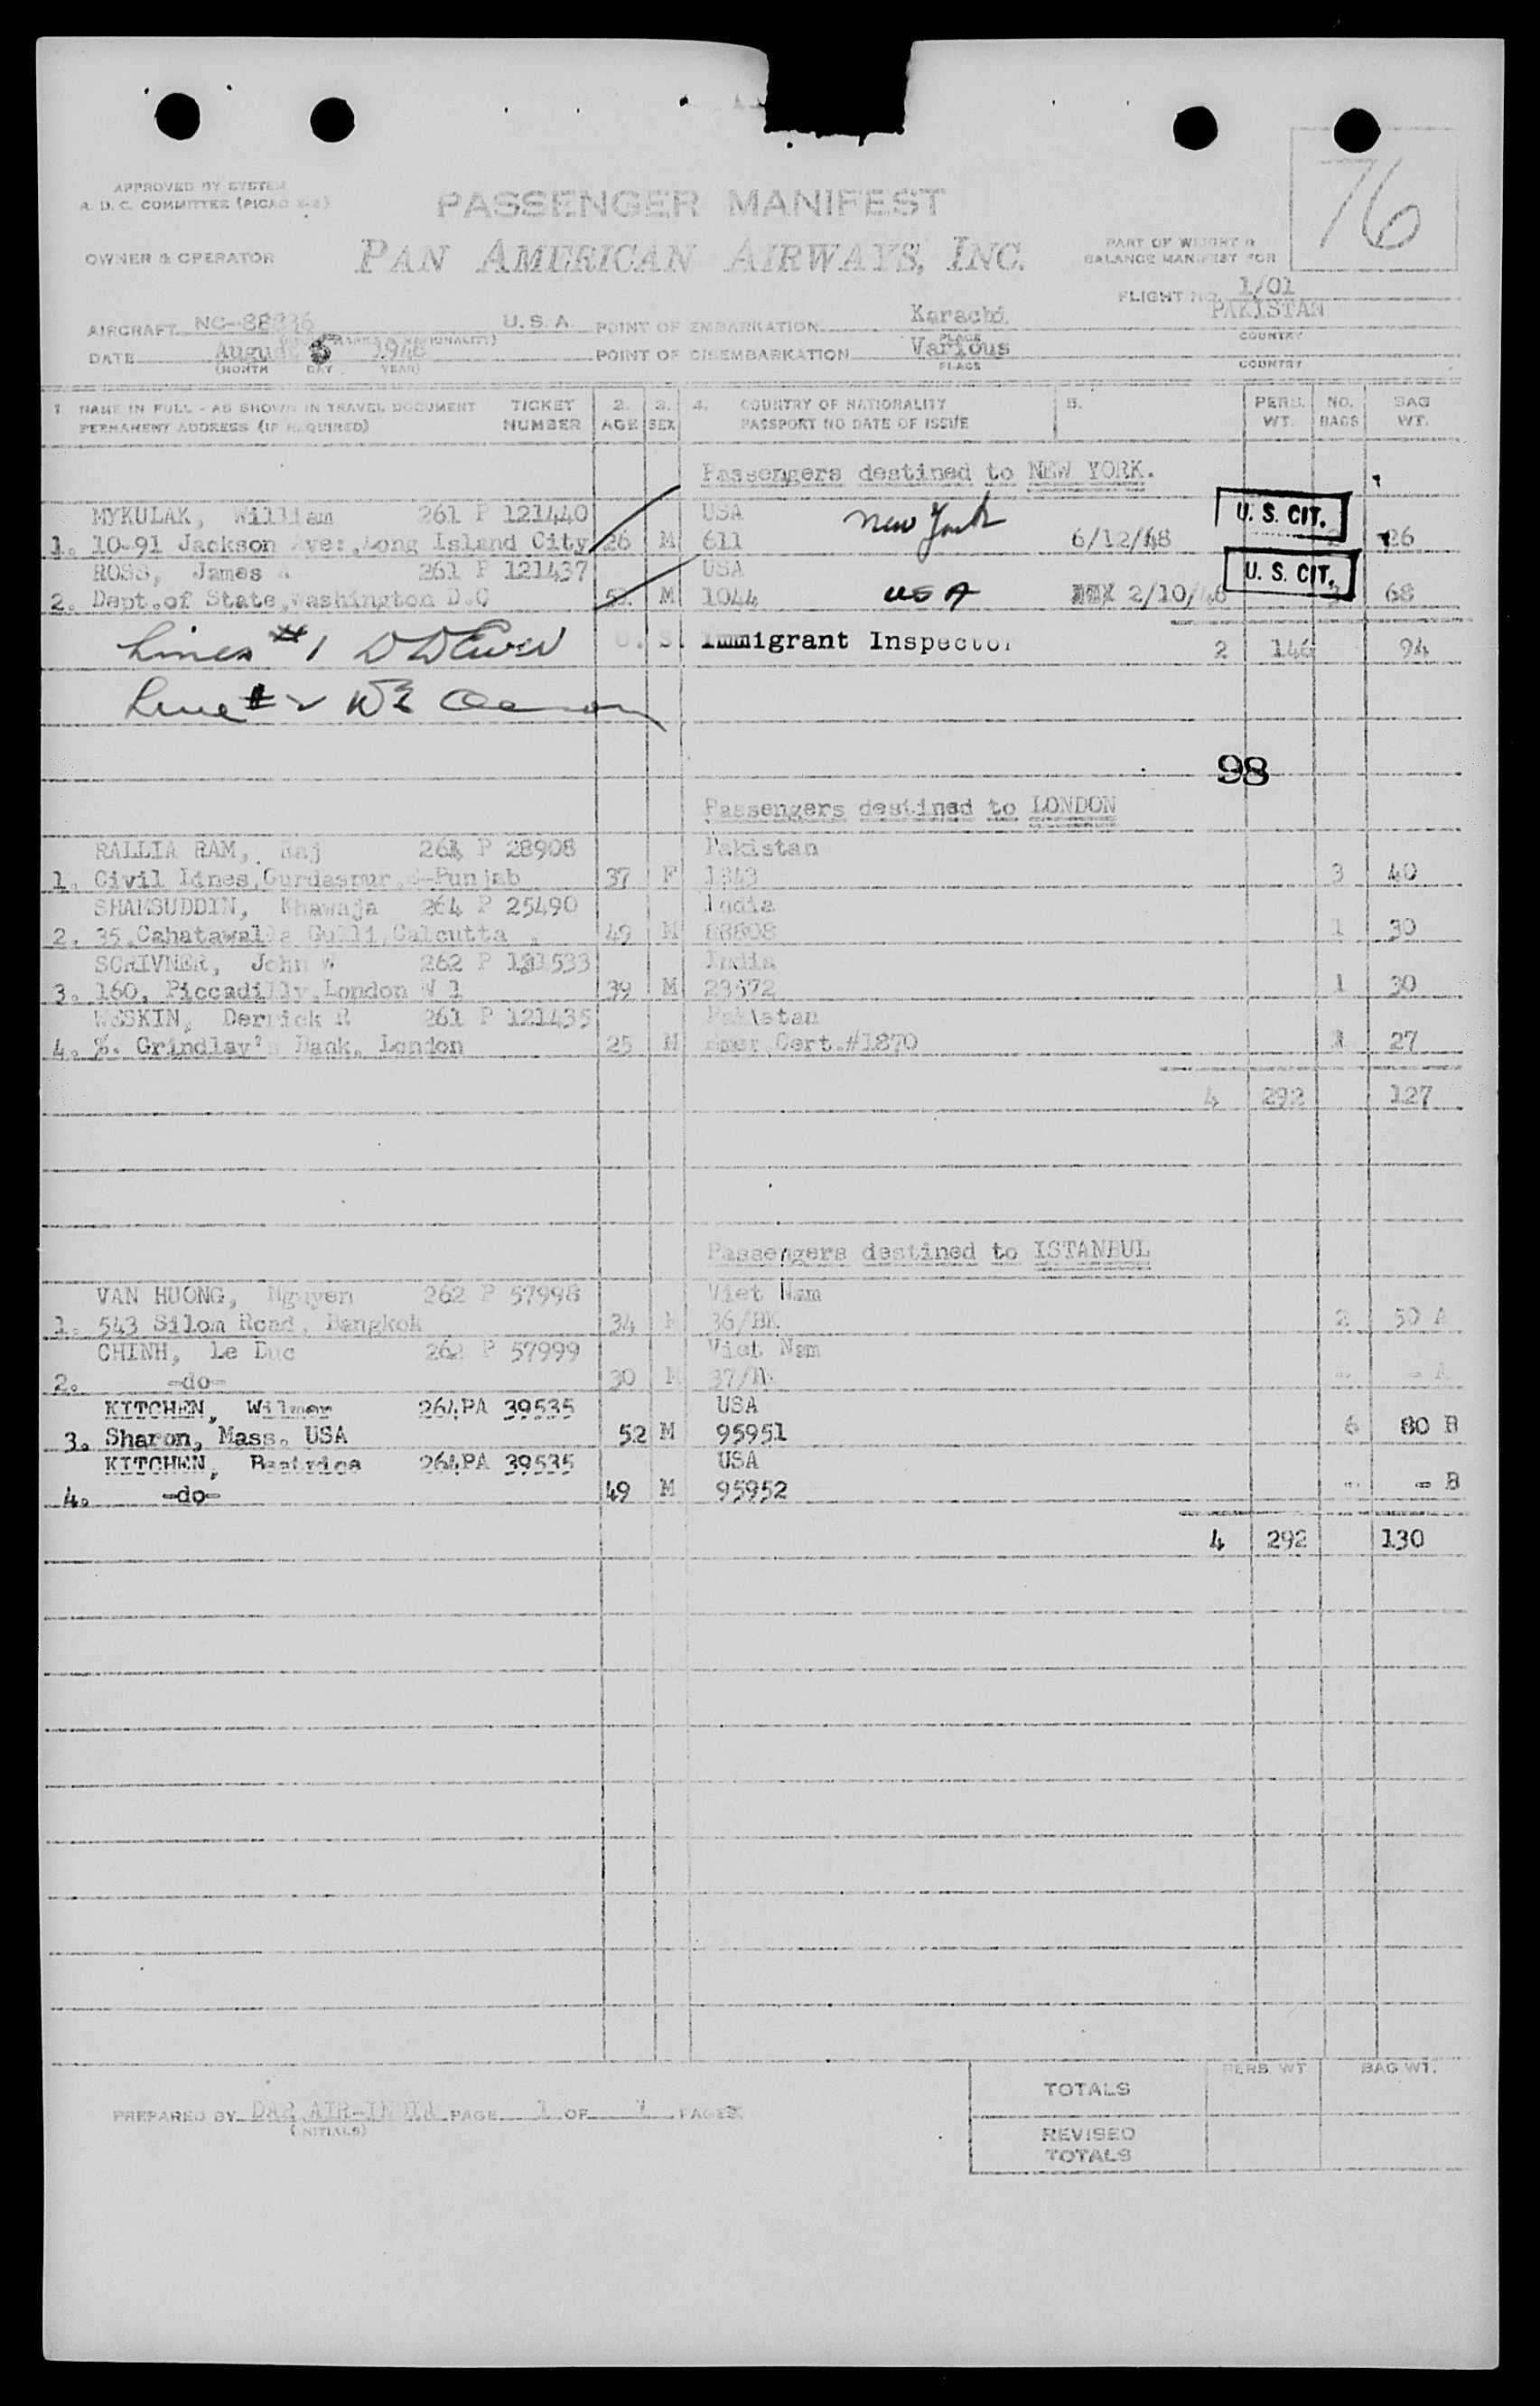 APPROVED BY SYSTEM
A. D. C. COMMITTEE (PICAO
PASSENGER MANIFEST
76
OWNER & OPERATOR
PAN AMERICAN AIRWAYS, INC.
PART OF WEIGHT &
BALANCE MANIFEST FOR
FLIGHT NO. 1/01
AIRCRAFT U. S. A. POINT OF EMBARKATION Karachi PAKISTAN
PLACE COUNTRY
DATE August 5 1948 POINT OF DISEMBARKATION Various
(MONTH DAY YEAR) PLACE COUNTRY
1. NAME IN FULL - AS SHOWN IN TRAVEL DOCUMENT TICKET 2. 3. 4. COUNTRY OF NATIONALITY 5. PERS. NO. BAG
PERMANENT ADDRESS (IF REQUIRED) NUMBER AGE SEX PASSPORT NO DATE OF ISSUE WT. BAGS WT.
Passengers destined to NEW YORK.
MYKULAK, William 261 P 121440 USA New York U. S. CIT.
1. 10-91 Jackson Ave:,Long Island City 26 M 611 6/12/48 26
ROSS, James A 261 P 121437 USA U. S. CIT.
2. Dept.of State,Washington D.C M 1044 USA 2/10/48 3 68
Lines #1 U. S. Immigrant Inspector 2 146 94
Line # 2
98
Passengers destined to LONDON
RALLIA RAM, Raj P 28908 Pakistan
1. Civil Lines,Gurdaspur, -Punjab 37 F 1843 3 40
SHAMSUDDIN, Khawaja 264 P 25490 India
2. 35,Cahatawalla Gulli,Calcutta . 49 M 88808 1 30
SCRIVNER, John W 262 P India
3. 160, Piccadilly,London W 1 39 M 23572 1 30
WESKIN, Derrick R 261 P 121435 Pakistan
4. %. Grindlay's Bank, London 25 M Emer.Cert.#1870 27
4 292 127
Passengers destined to ISTANBUL
VAN HUONG, Nguyen 262 P 57998 Viet Nam
1. 543 Silom Road, Bangkok 34 M 36/BK 2 50 A
CHINH, Le Duc 262 P 57999 Viet Nam
2. -do- 30 M - - A
KITCHEN, Wilmer 264PA 39535 USA
3. Sharon, Mass. USA 52 M 95951 6 80 B
KITCHEN, Beatrice 264PA 39535 USA
4. -do- 49 M 95952 - - B
4 292 130
PERS. WT BAG WT.
TOTALS
PREPARED BY AIR-INDIA PAGE 1 OF PAGES
(INITIALS)
REVISED
TOTALS